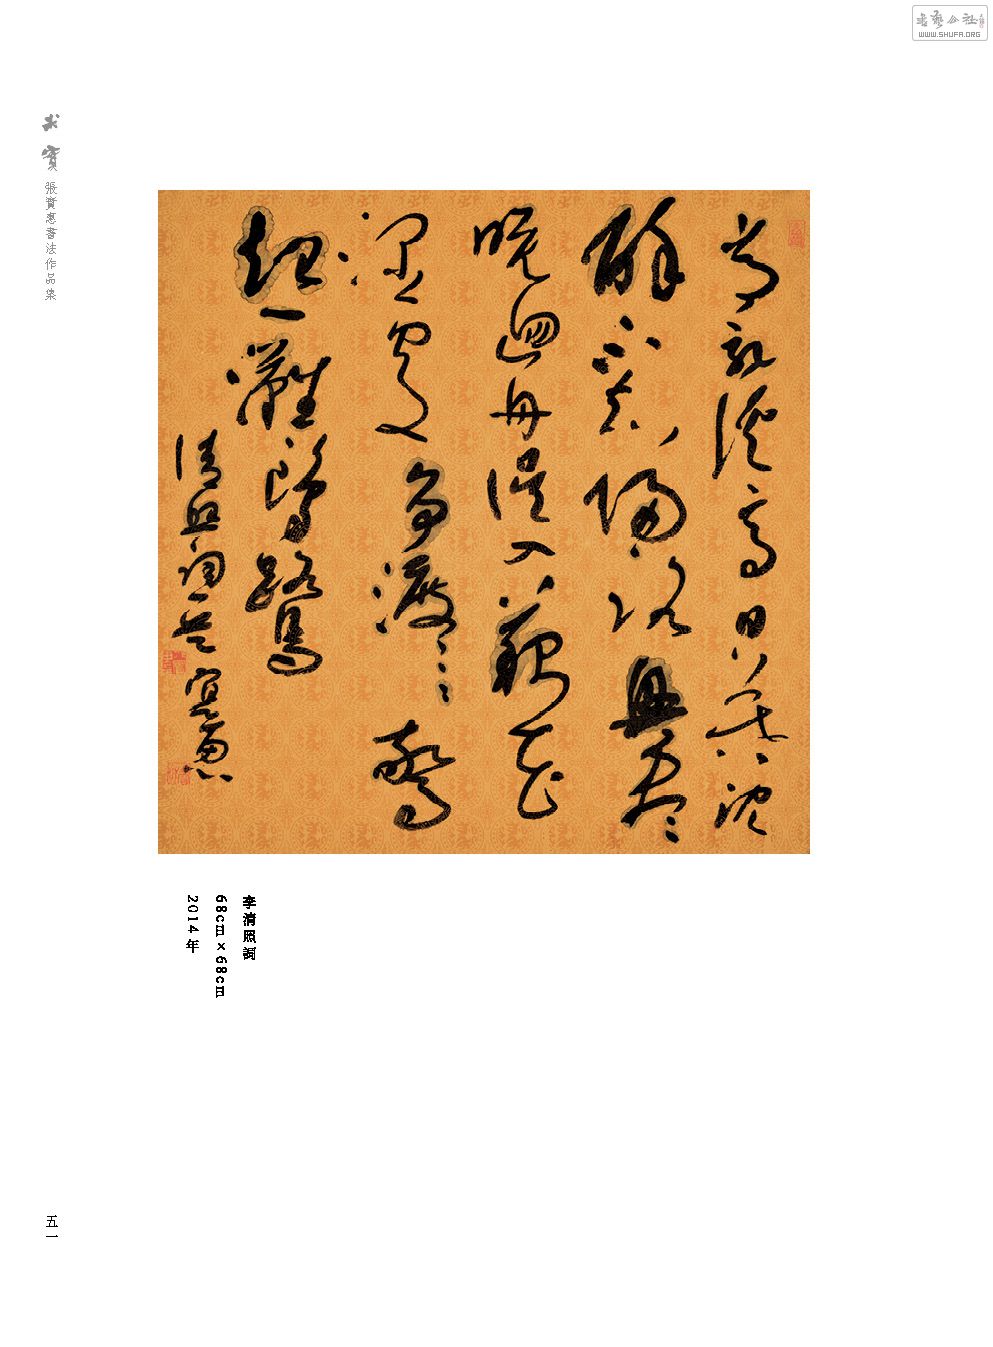 書藝公社
WWW.SHUFA.ORG
求實
張實惠書法作品集
常記溪亭日暮沈
醉不知歸路興盡
晚迴舟誤入藕花
深處爭渡〻〻驚
起一灘鷗鷺
清照詞一首 實惠
李清照詞
68cm×68cm
2014年
五一